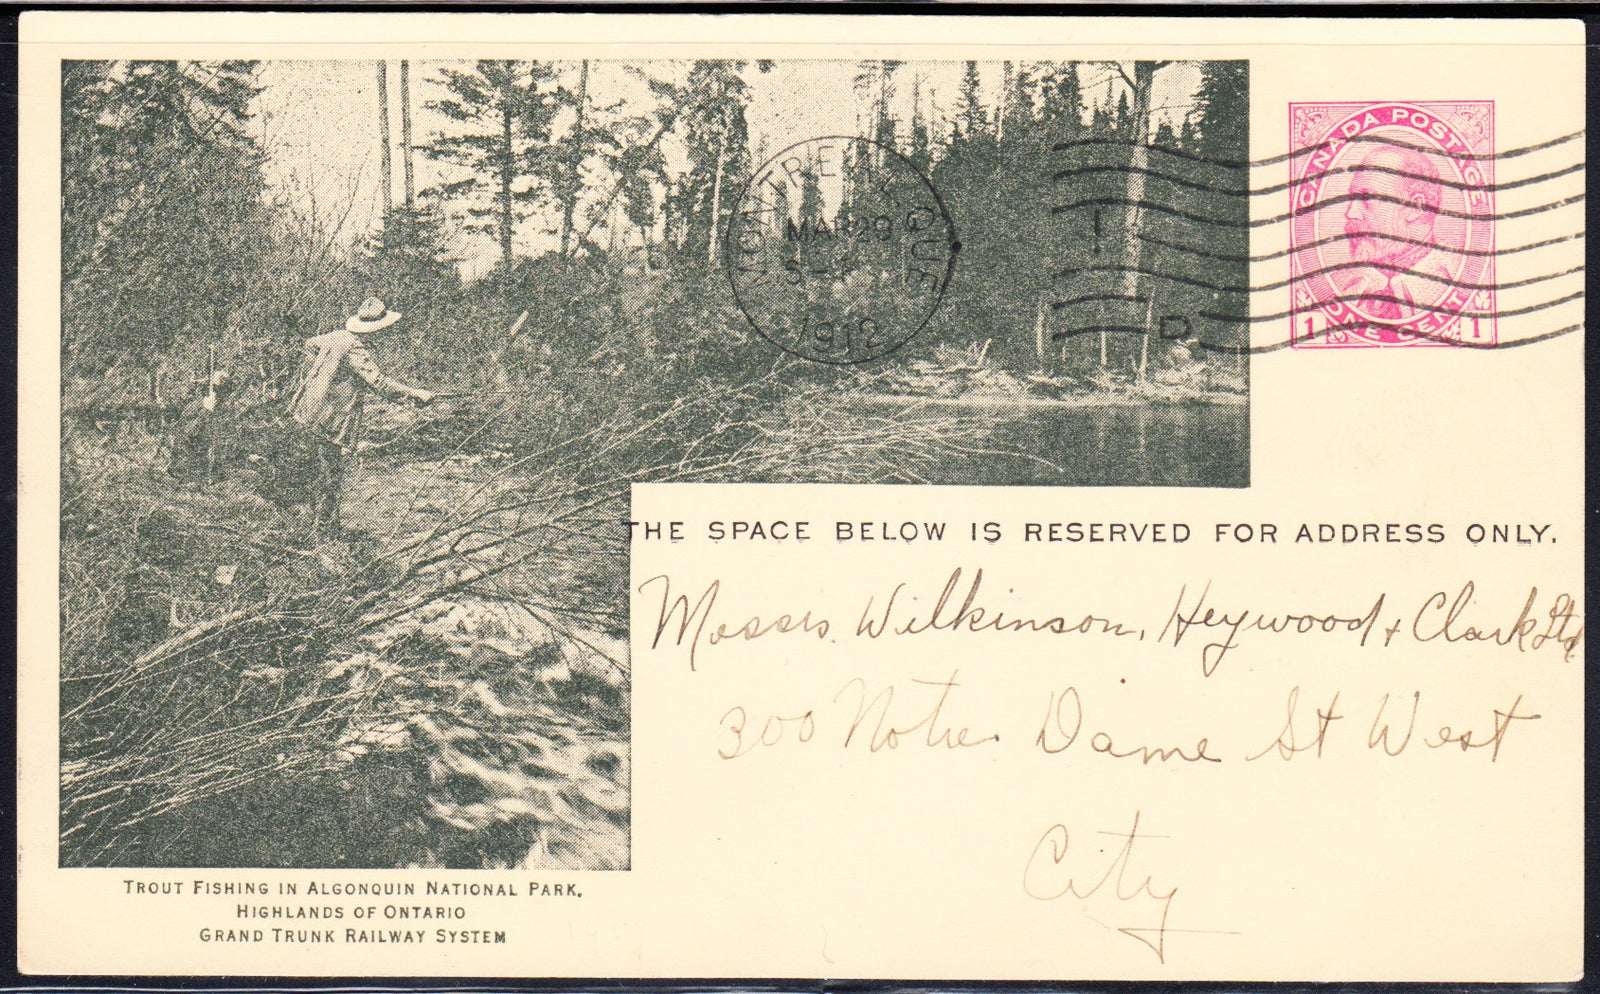 CANADA POSTAGE
ONE CENT
1 1
MONTREAL, QUE
MAR 29
1912
I
D
THE SPACE BELOW IS RESERVED FOR ADDRESS ONLY.
Messrs. Wilkinson, Heywood & Clark Ltd
300 Notre Dame St West
City
TROUT FISHING IN ALGONQUIN NATIONAL PARK.
HIGHLANDS OF ONTARIO
GRAND TRUNK RAILWAY SYSTEM